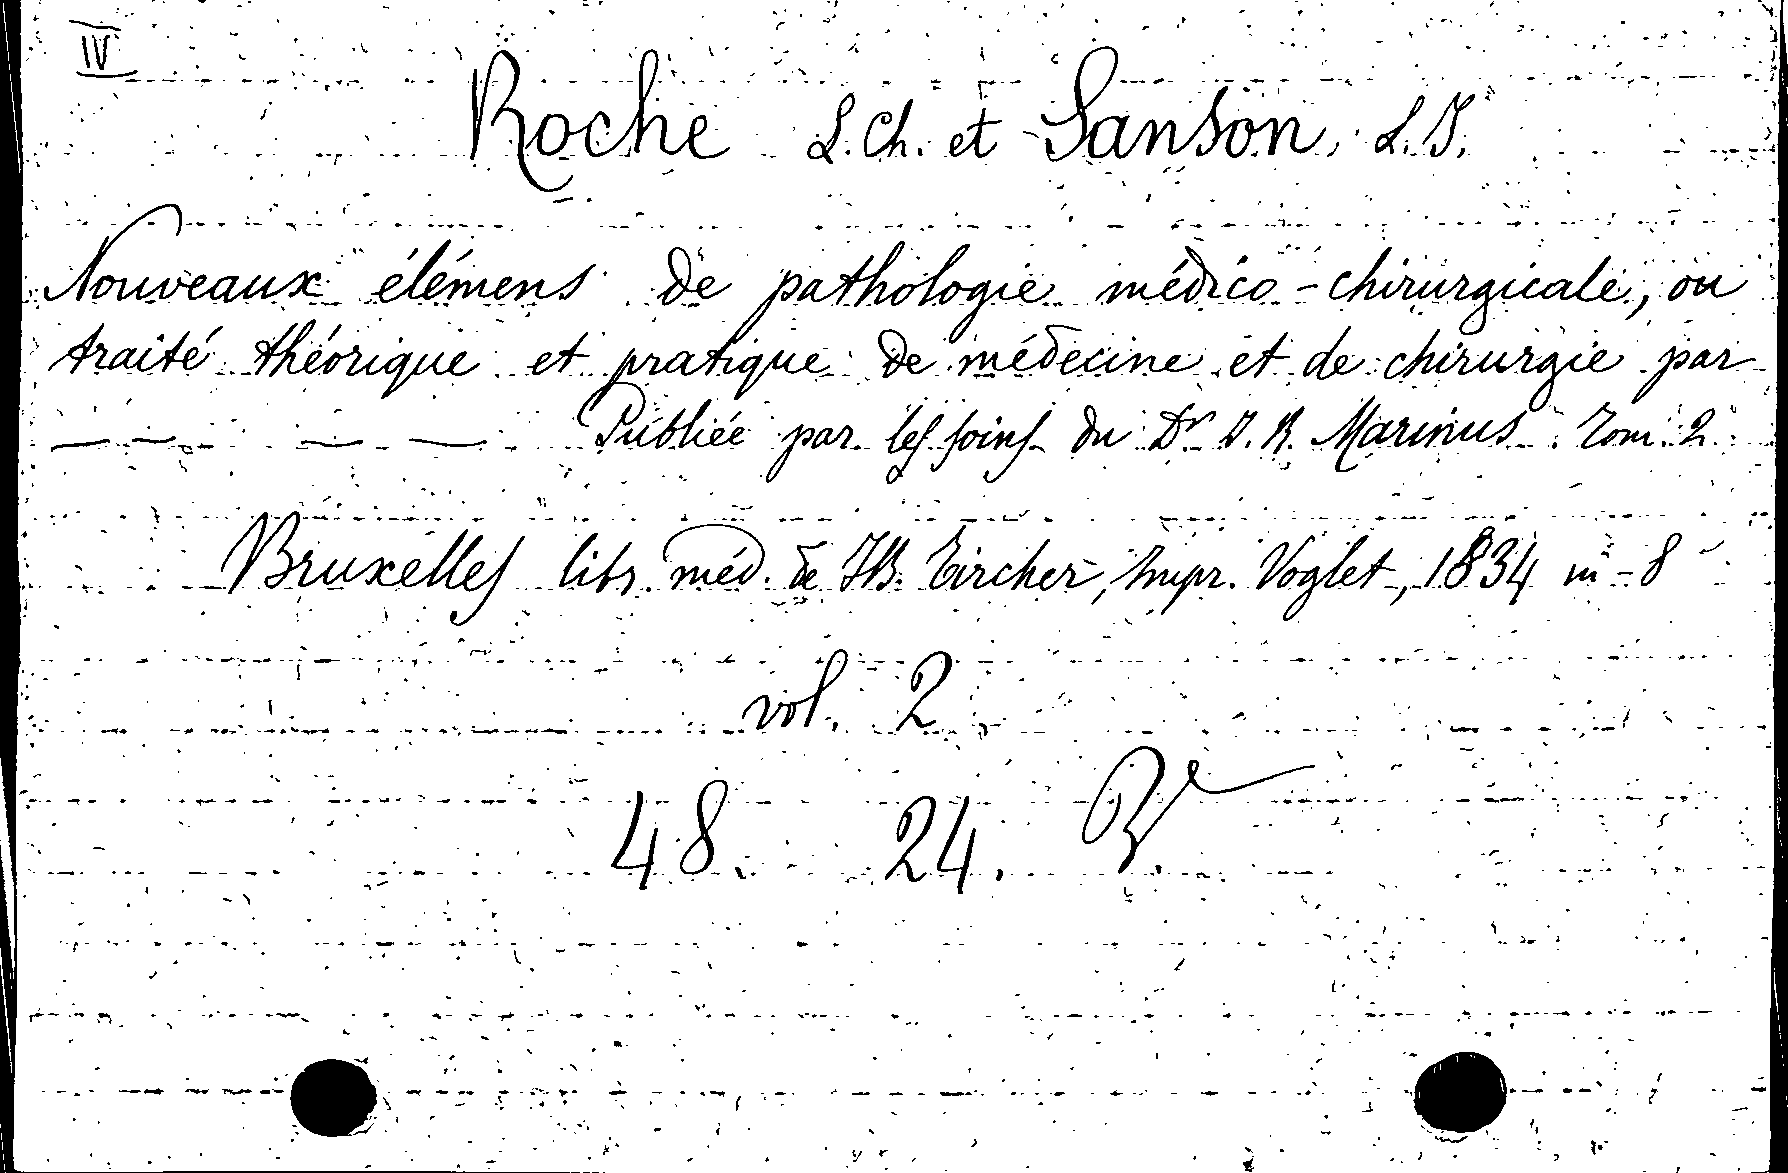 IV
Roche L. Ch. et Sanson, L. J.
Nouveaux élémens de pathologie médico-chirurgicale, ou
traité théorique et pratique de médecine et de chirurgie par
— — — — Publiée par les soins du Dr J. R. Marinus. Tom 2.
Bruxelles libr. méd. de J.B. Tircher, Impr. Voglet, 1834 in-8
vol. 2
48. 24.